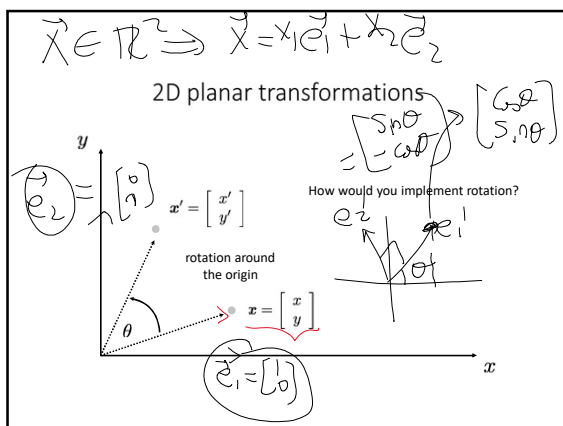 x⃗ ∈ ℝ² ⇒ x⃗ = x₁e⃗₁ + x₂e⃗₂
2D planar transformations
[cosθ
sinθ]
= [sinθ
-cosθ]
y
e⃗₂ = [0
1]
x' = [x'
y']
How would you implement rotation?
e₂'
e₁'
θ
rotation around
the origin
x = [x
y]
θ
x
e⃗₁ = [1
0]